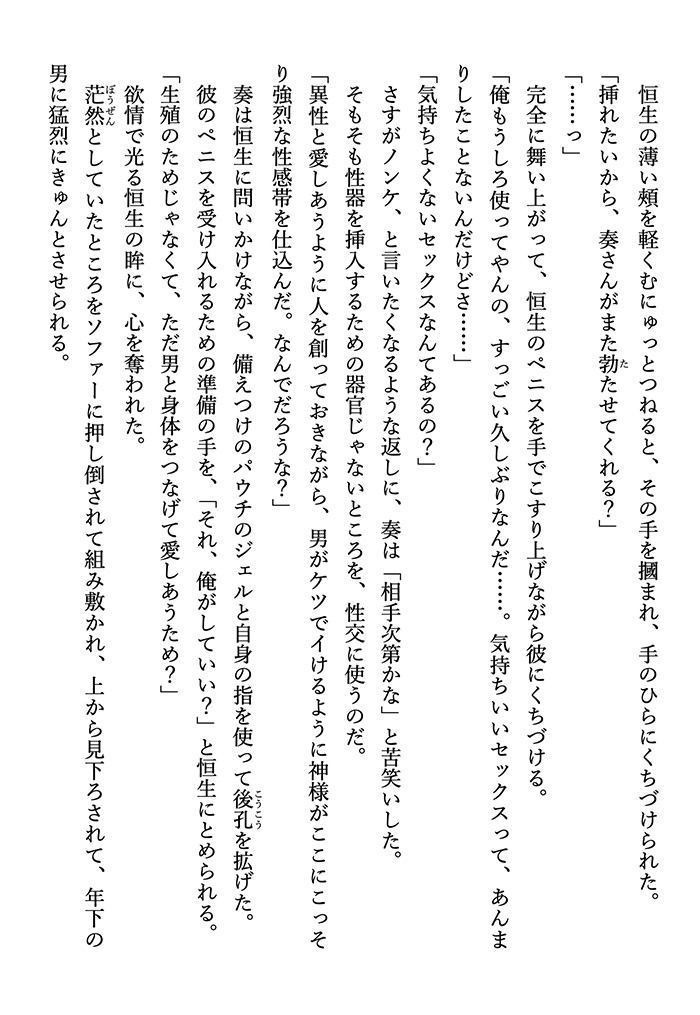 恒生の薄い頰を軽くむにゅっとつねると、その手を摑まれ、手のひらにくちづけられた。
「挿れたいから、奏さんがまた勃たせてくれる？」
「……っ」
完全に舞い上がって、恒生のペニスを手でこすり上げながら彼にくちづける。
「俺もうしろ使ってやんの、すっごい久しぶりなんだ……。気持ちいいセックスって、あんま
りしたことないんだけどさ……」
「気持ちよくないセックスなんてあるの？」
さすがノンケ、と言いたくなるような返しに、奏は「相手次第かな」と苦笑いした。
そもそも性器を挿入するための器官じゃないところを、性交に使うのだ。
「異性と愛しあうように人を創っておきながら、男がケツでイけるように神様がここにこっそ
り強烈な性感帯を仕込んだ。なんでだろうな？」
奏は恒生に問いかけながら、備えつけのパウチのジェルと自身の指を使って後孔を拡げた。
彼のペニスを受け入れるための準備の手を、「それ、俺がしていい？」と恒生にとめられる。
「生殖のためじゃなくて、ただ男と身体をつなげて愛しあうため？」
欲情で光る恒生の眸に、心を奪われた。
茫然としていたところをソファーに押し倒されて組み敷かれ、上から見下ろされて、年下の
男に猛烈にきゅんとさせられる。